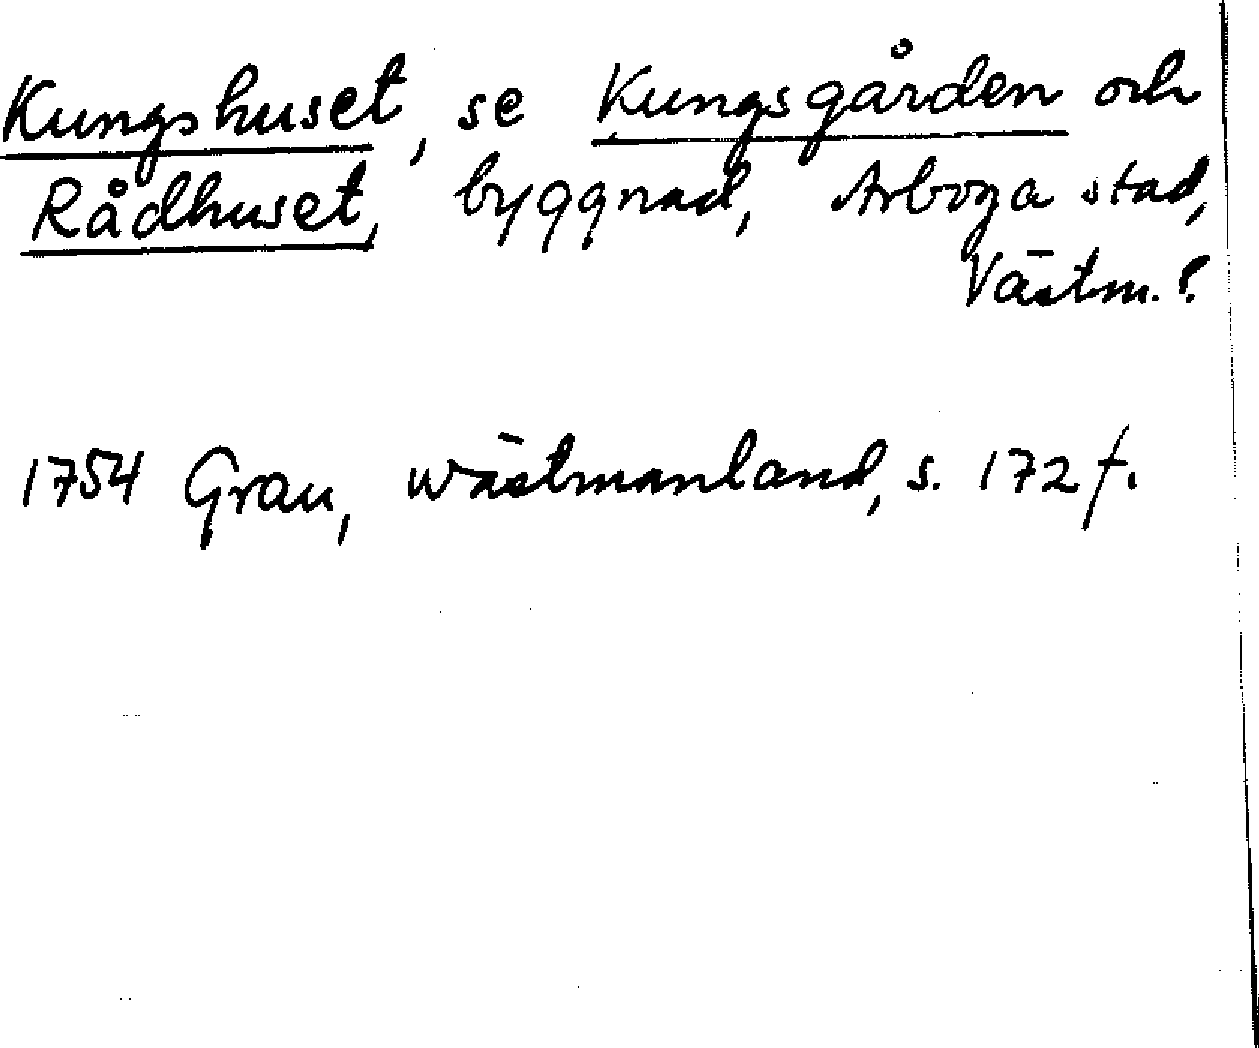 Kungshuset, se Kungsgården och
Rådhuset, byggnad, Arboga stad,
Västm. l.
1754 Grau, Wästmanland, s. 172 f.